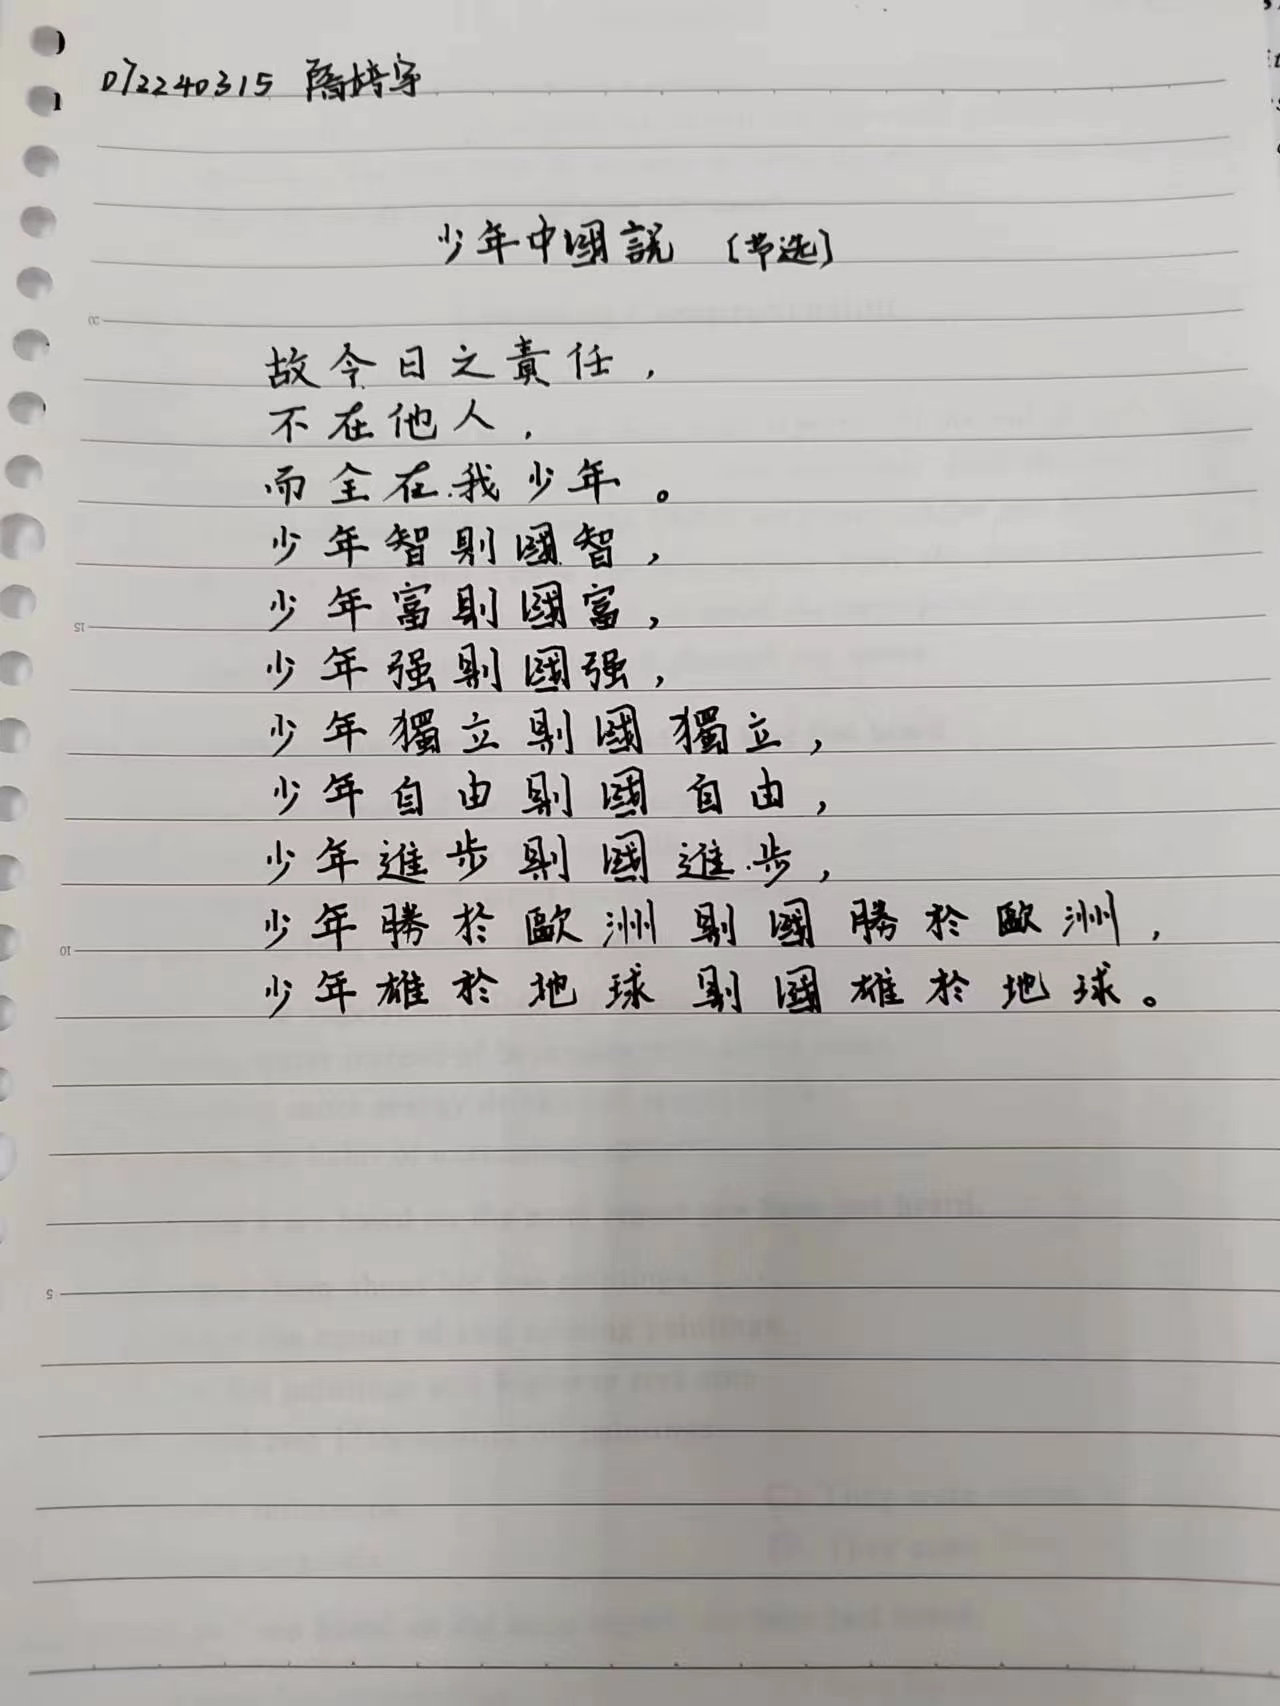 072240315
少年中國說 [节选]
故今日之責任，
不在他人，
而全在我少年。
少年智則國智，
少年富則國富，
少年强則國强，
少年獨立則國獨立，
少年自由則國自由，
少年進步則國進步，
少年勝於歐洲則國勝於歐洲，
少年雄於地球則國雄於地球。
20
15
10
5